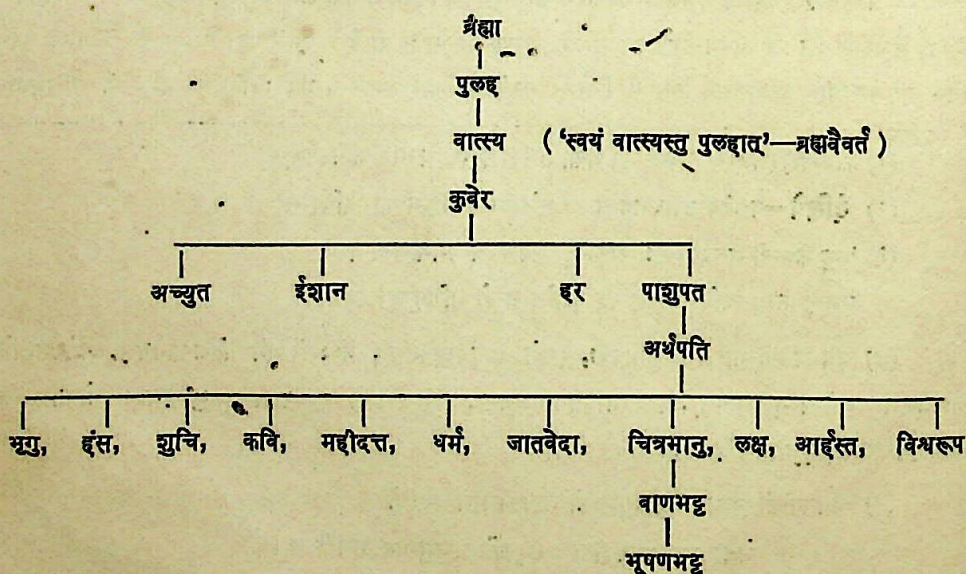 ब्रह्मा
पुलह
वात्स्य ( ‘स्वयं वात्स्यस्तु पुलहात्’—ब्रह्मवैवर्त )
कुवेर
अच्युत ईशान हर पाशुपत
अर्थपति
भृगु, हंस, शुचि, कवि, महीदत्त, धर्म, जातवेदा, चित्रभानु, लक्ष, आर्हस्त, विश्वरूप
वाणभट्ट
भूषणभट्ट